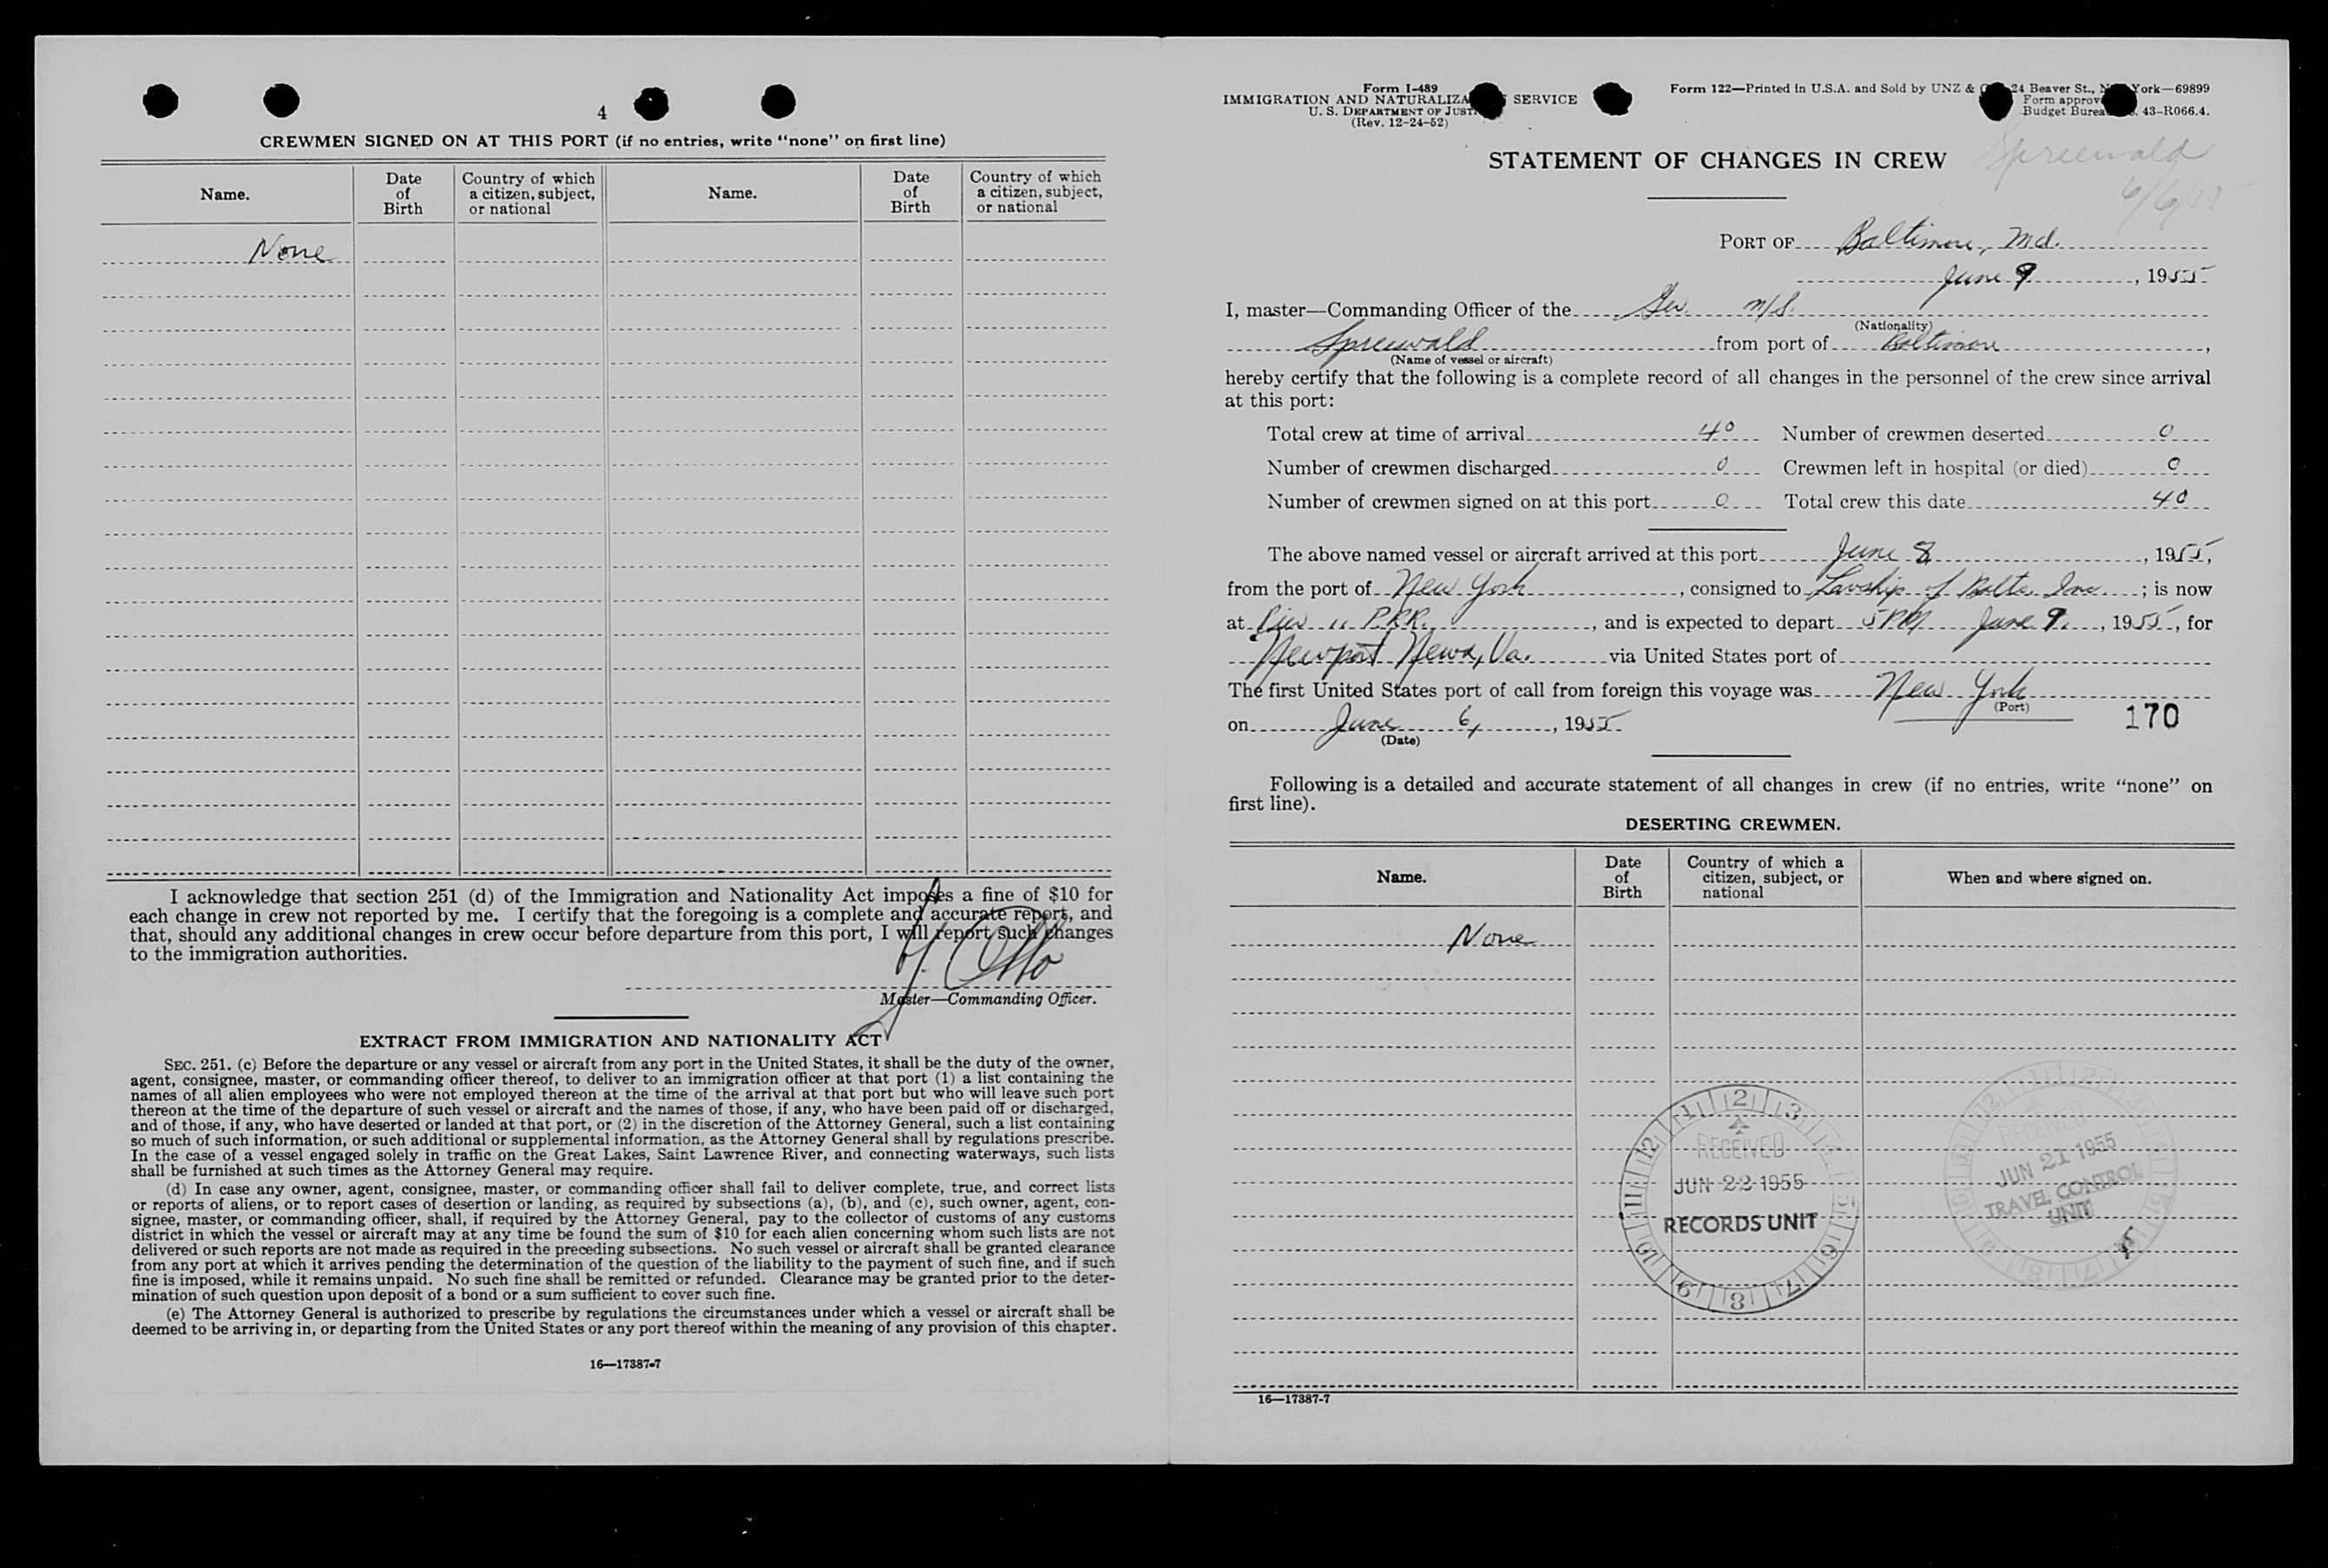 4
CREWMEN SIGNED ON AT THIS PORT (if no entries, write "none" on first line)
Name.
Date of Birth
Country of which a citizen, subject, or national
Name.
Date of Birth
Country of which a citizen, subject, or national
None
I acknowledge that section 251 (d) of the Immigration and Nationality Act imposes a fine of $10 for
each change in crew not reported by me. I certify that the foregoing is a complete and accurate report, and
that, should any additional changes in crew occur before departure from this port, I will report such changes
to the immigration authorities.
Otto
Master—Commanding Officer.
EXTRACT FROM IMMIGRATION AND NATIONALITY ACT
SEC. 251. (c) Before the departure or any vessel or aircraft from any port in the United States, it shall be the duty of the owner,
agent, consignee, master, or commanding officer thereof, to deliver to an immigration officer at that port (1) a list containing the
names of all alien employees who were not employed thereon at the time of the arrival at that port but who will leave such port
thereon at the time of the departure of such vessel or aircraft and the names of those, if any, who have been paid off or discharged,
and of those, if any, who have deserted or landed at that port, or (2) in the discretion of the Attorney General, such a list containing
so much of such information, or such additional or supplemental information, as the Attorney General shall by regulations prescribe.
In the case of a vessel engaged solely in traffic on the Great Lakes, Saint Lawrence River, and connecting waterways, such lists
shall be furnished at such times as the Attorney General may require.
(d) In case any owner, agent, consignee, master, or commanding officer shall fail to deliver complete, true, and correct lists
or reports of aliens, or to report cases of desertion or landing, as required by subsections (a), (b), and (c), such owner, agent, con-
signee, master, or commanding officer, shall, if required by the Attorney General, pay to the collector of customs of any customs
district in which the vessel or aircraft may at any time be found the sum of $10 for each alien concerning whom such lists are not
delivered or such reports are not made as required in the preceding subsections. No such vessel or aircraft shall be granted clearance
from any port at which it arrives pending the determination of the question of the liability to the payment of such fine, and if such
fine is imposed, while it remains unpaid. No such fine shall be remitted or refunded. Clearance may be granted prior to the deter-
mination of such question upon deposit of a bond or a sum sufficient to cover such fine.
(e) The Attorney General is authorized to prescribe by regulations the circumstances under which a vessel or aircraft shall be
deemed to be arriving in, or departing from the United States or any port thereof within the meaning of any provision of this chapter.
16—17387-7
Form I-489
IMMIGRATION AND NATURALIZA SERVICE
U. S. DEPARTMENT OF JUST
(Rev. 12-24-52)
Form 122—Printed in U.S.A. and Sold by UNZ & 24 Beaver St., York—69899
Form approv
Budget Burea 43-R066.4.
Spreewald
6/6/55
STATEMENT OF CHANGES IN CREW
PORT OF Baltimore, Md.
June 9, 1955
I, master—Commanding Officer of the Ger. M/S.
(Nationality)
Spreewald from port of Baltimore,
(Name of vessel or aircraft)
hereby certify that the following is a complete record of all changes in the personnel of the crew since arrival
at this port:
Total crew at time of arrival 40 Number of crewmen deserted 0
Number of crewmen discharged 0 Crewmen left in hospital (or died) 0
Number of crewmen signed on at this port 0 Total crew this date 40
The above named vessel or aircraft arrived at this port June 8, 1955,
from the port of New York, consigned to of Balto. Inc.; is now
at Pier 11 P.R.R., and is expected to depart 5 PM June 9, 1955, for
Newport News, Va. via United States port of
The first United States port of call from foreign this voyage was New York
(Port)
170
on June 6, 1955
(Date)
Following is a detailed and accurate statement of all changes in crew (if no entries, write "none" on
first line).
DESERTING CREWMEN.
Name.
Date of Birth
Country of which a citizen, subject, or national
When and where signed on.
None
RECEIVED
JUN 22 1955
RECORDS UNIT
RECEIVED
JUN 21 1955
TRAVEL CONTROL
UNIT
16—17387-7